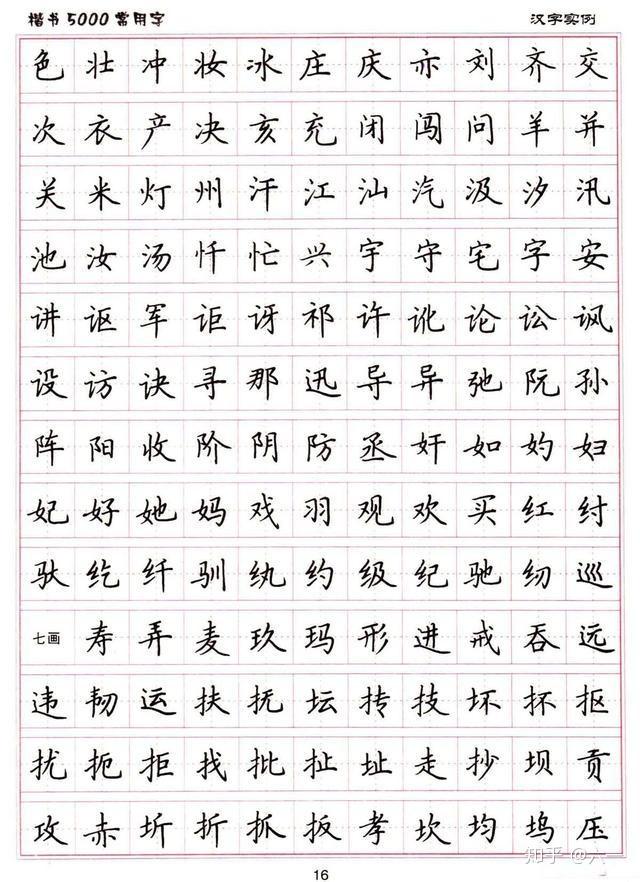 楷书5000常用字 汉字实例
色壮冲妆冰庄庆亦刘齐交
次衣产决亥充闭闯问羊并
关米灯州汗江汕汽汲汐汛
池汝汤忏忙兴宇守宅字安
讲讴军讵讶祁许讹论讼讽
设访诀寻那迅导异弛阮孙
阵阳收阶阴防丞奸如妁妇
妃好她妈戏羽观欢买红纣
驮纥纤驯纨约级纪驰纫巡
七画寿弄麦玖玛形进戒吞远
违韧运扶抚坛抟技坏抔抠
扰扼拒找批扯址走抄坝贡
攻赤圻折抓扳孝坎均坞压
知乎 @六一
16